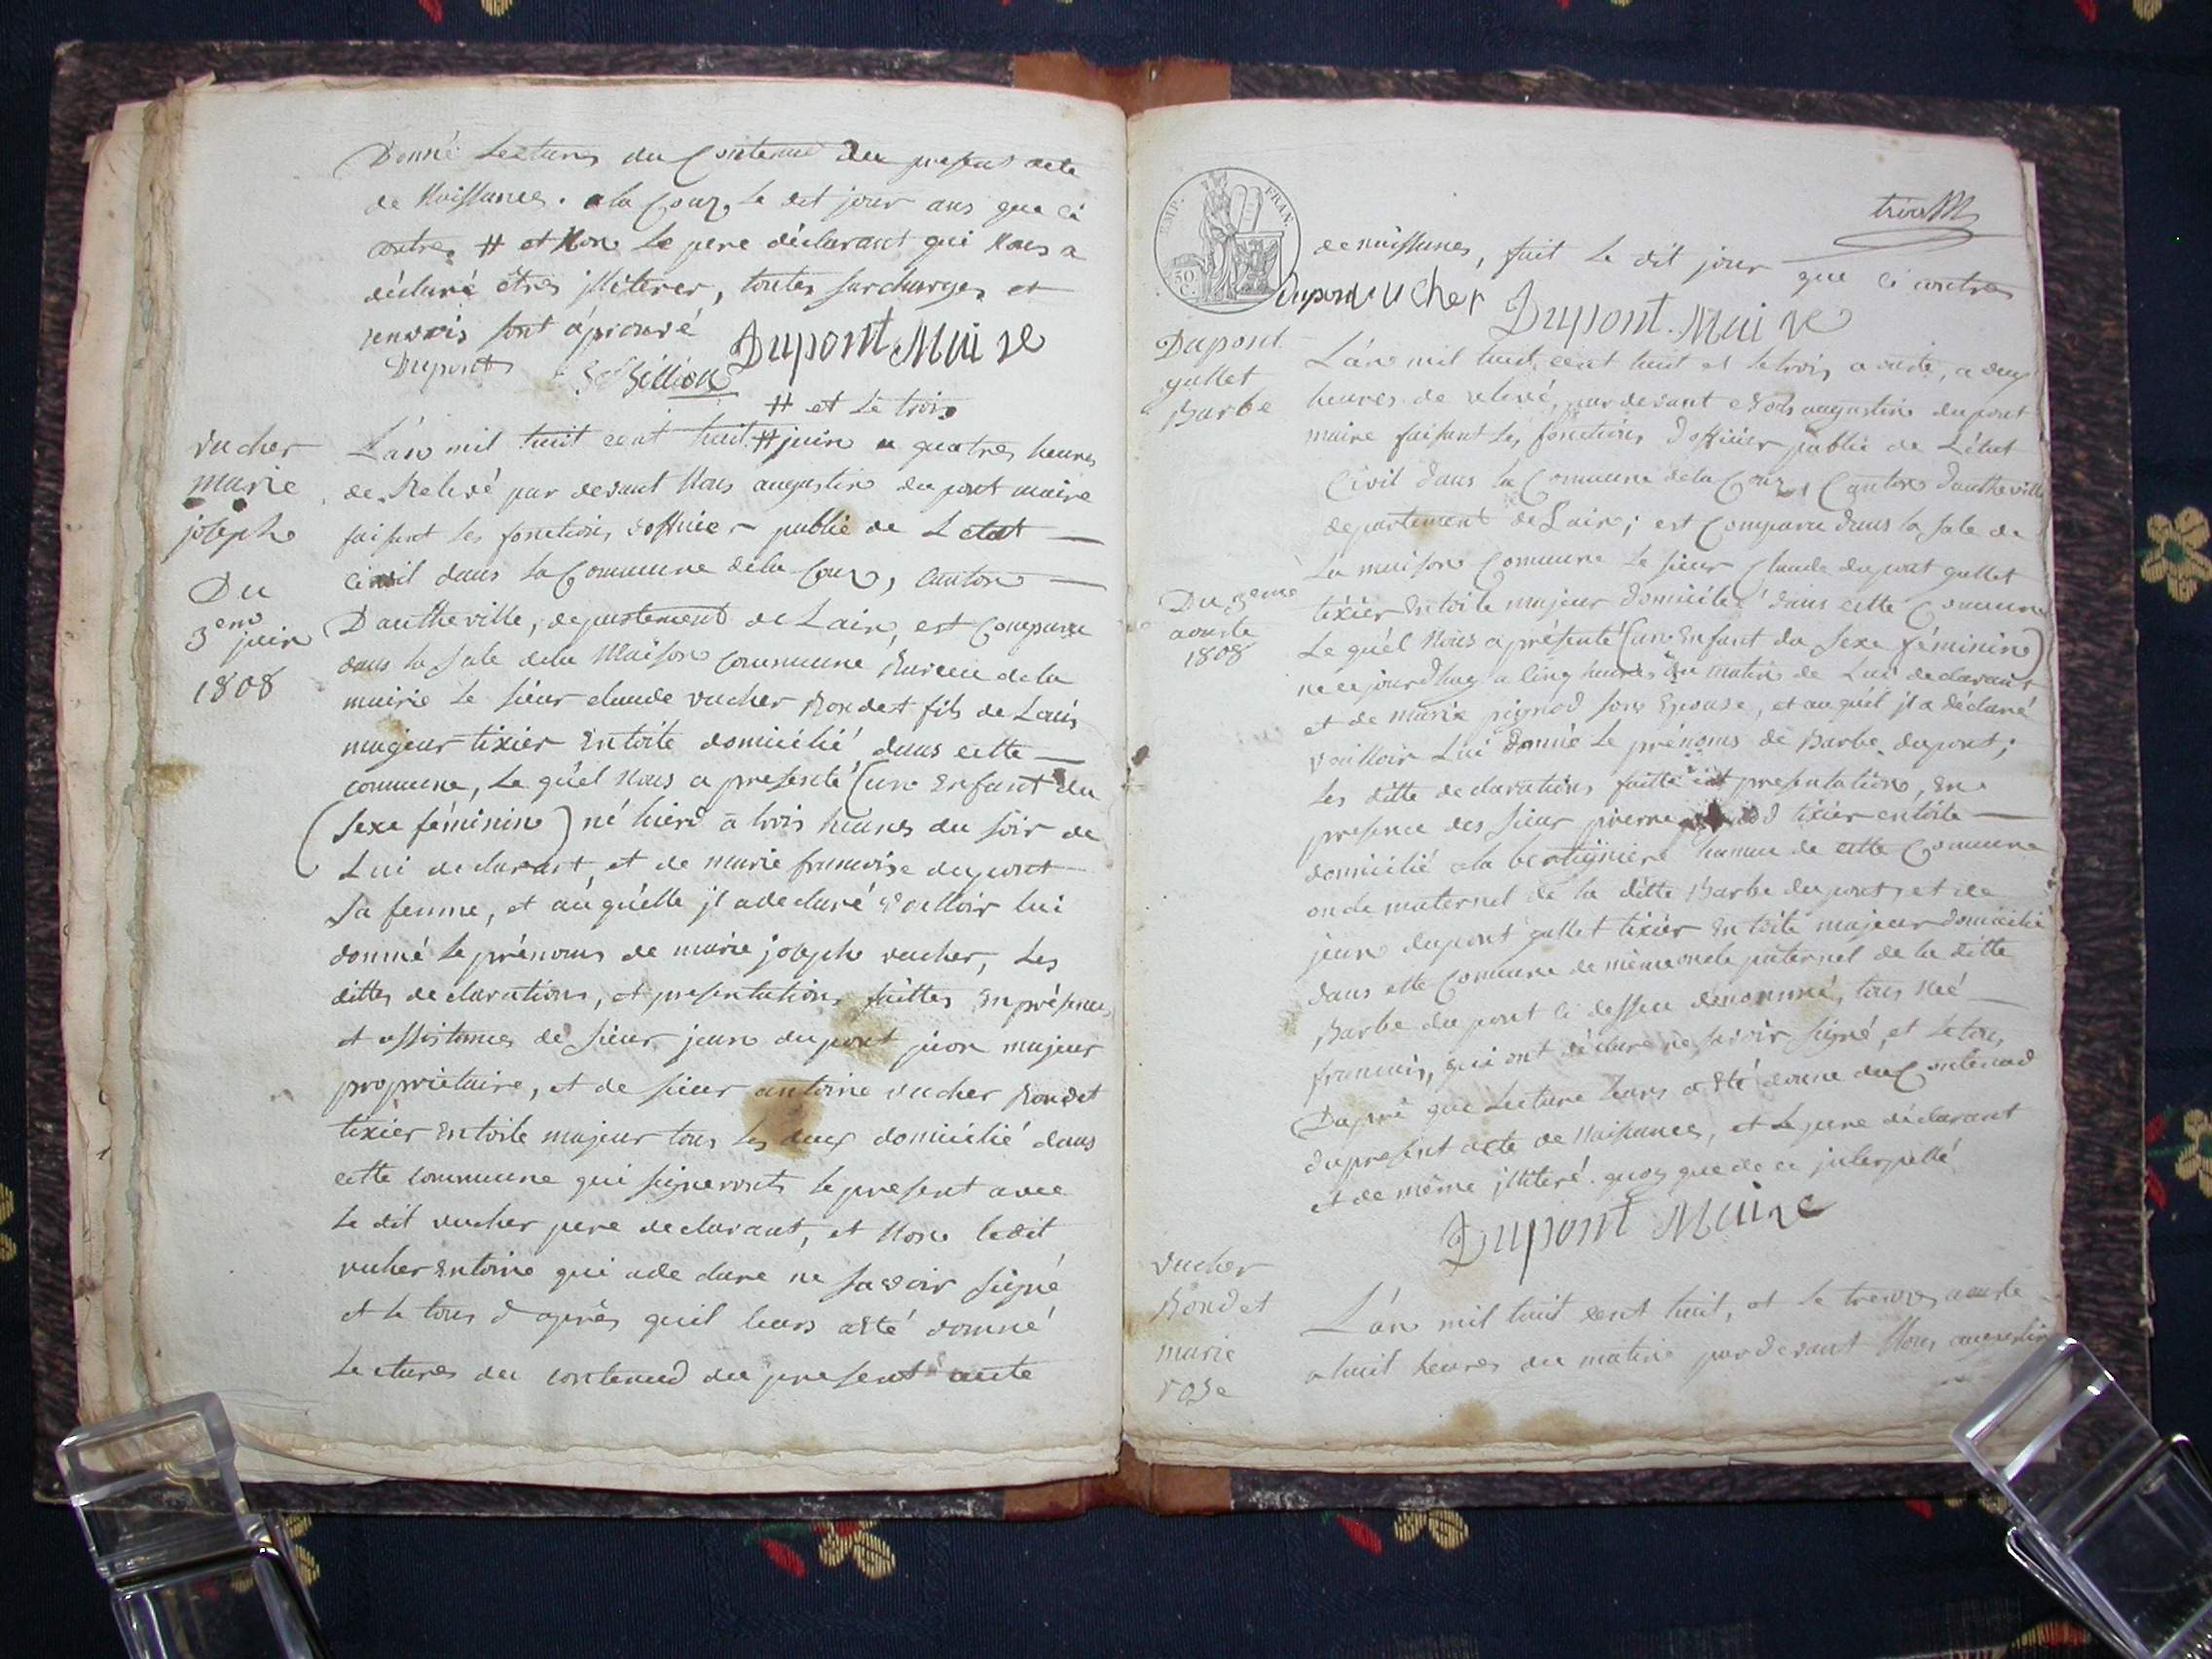 Donné Lectures du Contenue du presens acte
de Naissances. a la Coux, Le dit jour ans que ci
contres # et Non Le pere déclarant qui Nous a
déclaré êtres jlliterer, toutes surcharges et
renvois sont áprouvé
Dupont Dupont Maire
# et Le trois
vucher
marie
joseph
Du
3eme juin
1808
L'an mil huit cent huit # juin a quatres heures
de Relevé par devant Nous augustin du pont maire
faisant les fonctions d'officier publie de L etat
Civil dans la Commune dela Coux, Canton
Dautheville, departement de Lain, est Comparu
dans la Sale dela Maison commune Bureau dela
mairie Le sieur claude vucher Rondet fils de Louis
majeur tixier Entoile domicilié dans cette
commune, Le quél Nous a presenté (un Enfant du
Sexe féminin) né hierd à trois heures du soir de
Lui declarant, et de marie francoise dupont
Sa femme, et aúquélle jl adeclaré voulloir lui
donné Le prénoms de marie joseph vucher, Les
dittes declarations, et presentations faittes En présences
et assistances de sieur jean du pont pion majeur
propriétaire, et de sieur antoine vucher Rondet
tixier Entoile majeur tous les deux domicilié dans
cette commune qui signeronts le present avec
Le dit vucher pere declarant, et Non ledit
vucher Entoine qui ade clare ne savoir signé
et le tous d aprés quil leurs asté donné
Lectures du contenud du present acte
EMP. FRAN.
50 C.
trois
de naissances, fait Le dit jour que ci contres
Dupont vucher Dupont. Maire
Dupont
gallet
Barbe
Du 3eme
aouste
1808
L'an mil huit cent huit et le trois aouste, a deux
heures de relevé, pardevant Nous augustin dupont
maire faisant Les fonctions d officier public de Létat
Civil dans la Commune dela Coux, Canton dautheville
departement de Lain; est Comparu dans la sale de
La maison Commune Le sieur Claude dupont gallet
tixier Entoile majeur domicilié dans cette Commune
Le quél Nous a présenté (un Enfant du Sexe féminin)
né cejourdhuy a Cinq heures du matin de Lui declarant
et de marie pignod sons Epouse, et auquél jl a déclaré
voulloir Lui donné Le prénoms de Barbe dupont;
Les ditte declarations faitte et presentations, En
presence des sieur pierre tixier entoile
domicilié ala hamau de cette Commune
oncle maternel de la ditte Barbe dupont, et de
jean dupont gallet tixier Entoile majeur domicilié
dans cette Commune de même oncle paternel de la ditte
Barbe du pont ci dessu dénommé, tous Né
francais, qui ont déclare ne savoir signé, et Letous
Dapré que Lecture Leurs a Eté donne du Contenud
du present acte de Naissances, et Le pere déclarant
et de même jlliteré. quoy que de ce jnterpellé
Dupont Maire
vucher
Rondet
marie
rose
L'an mil huit cent huit, et Le aouste
a huit heures du matin par devant Nous augustin